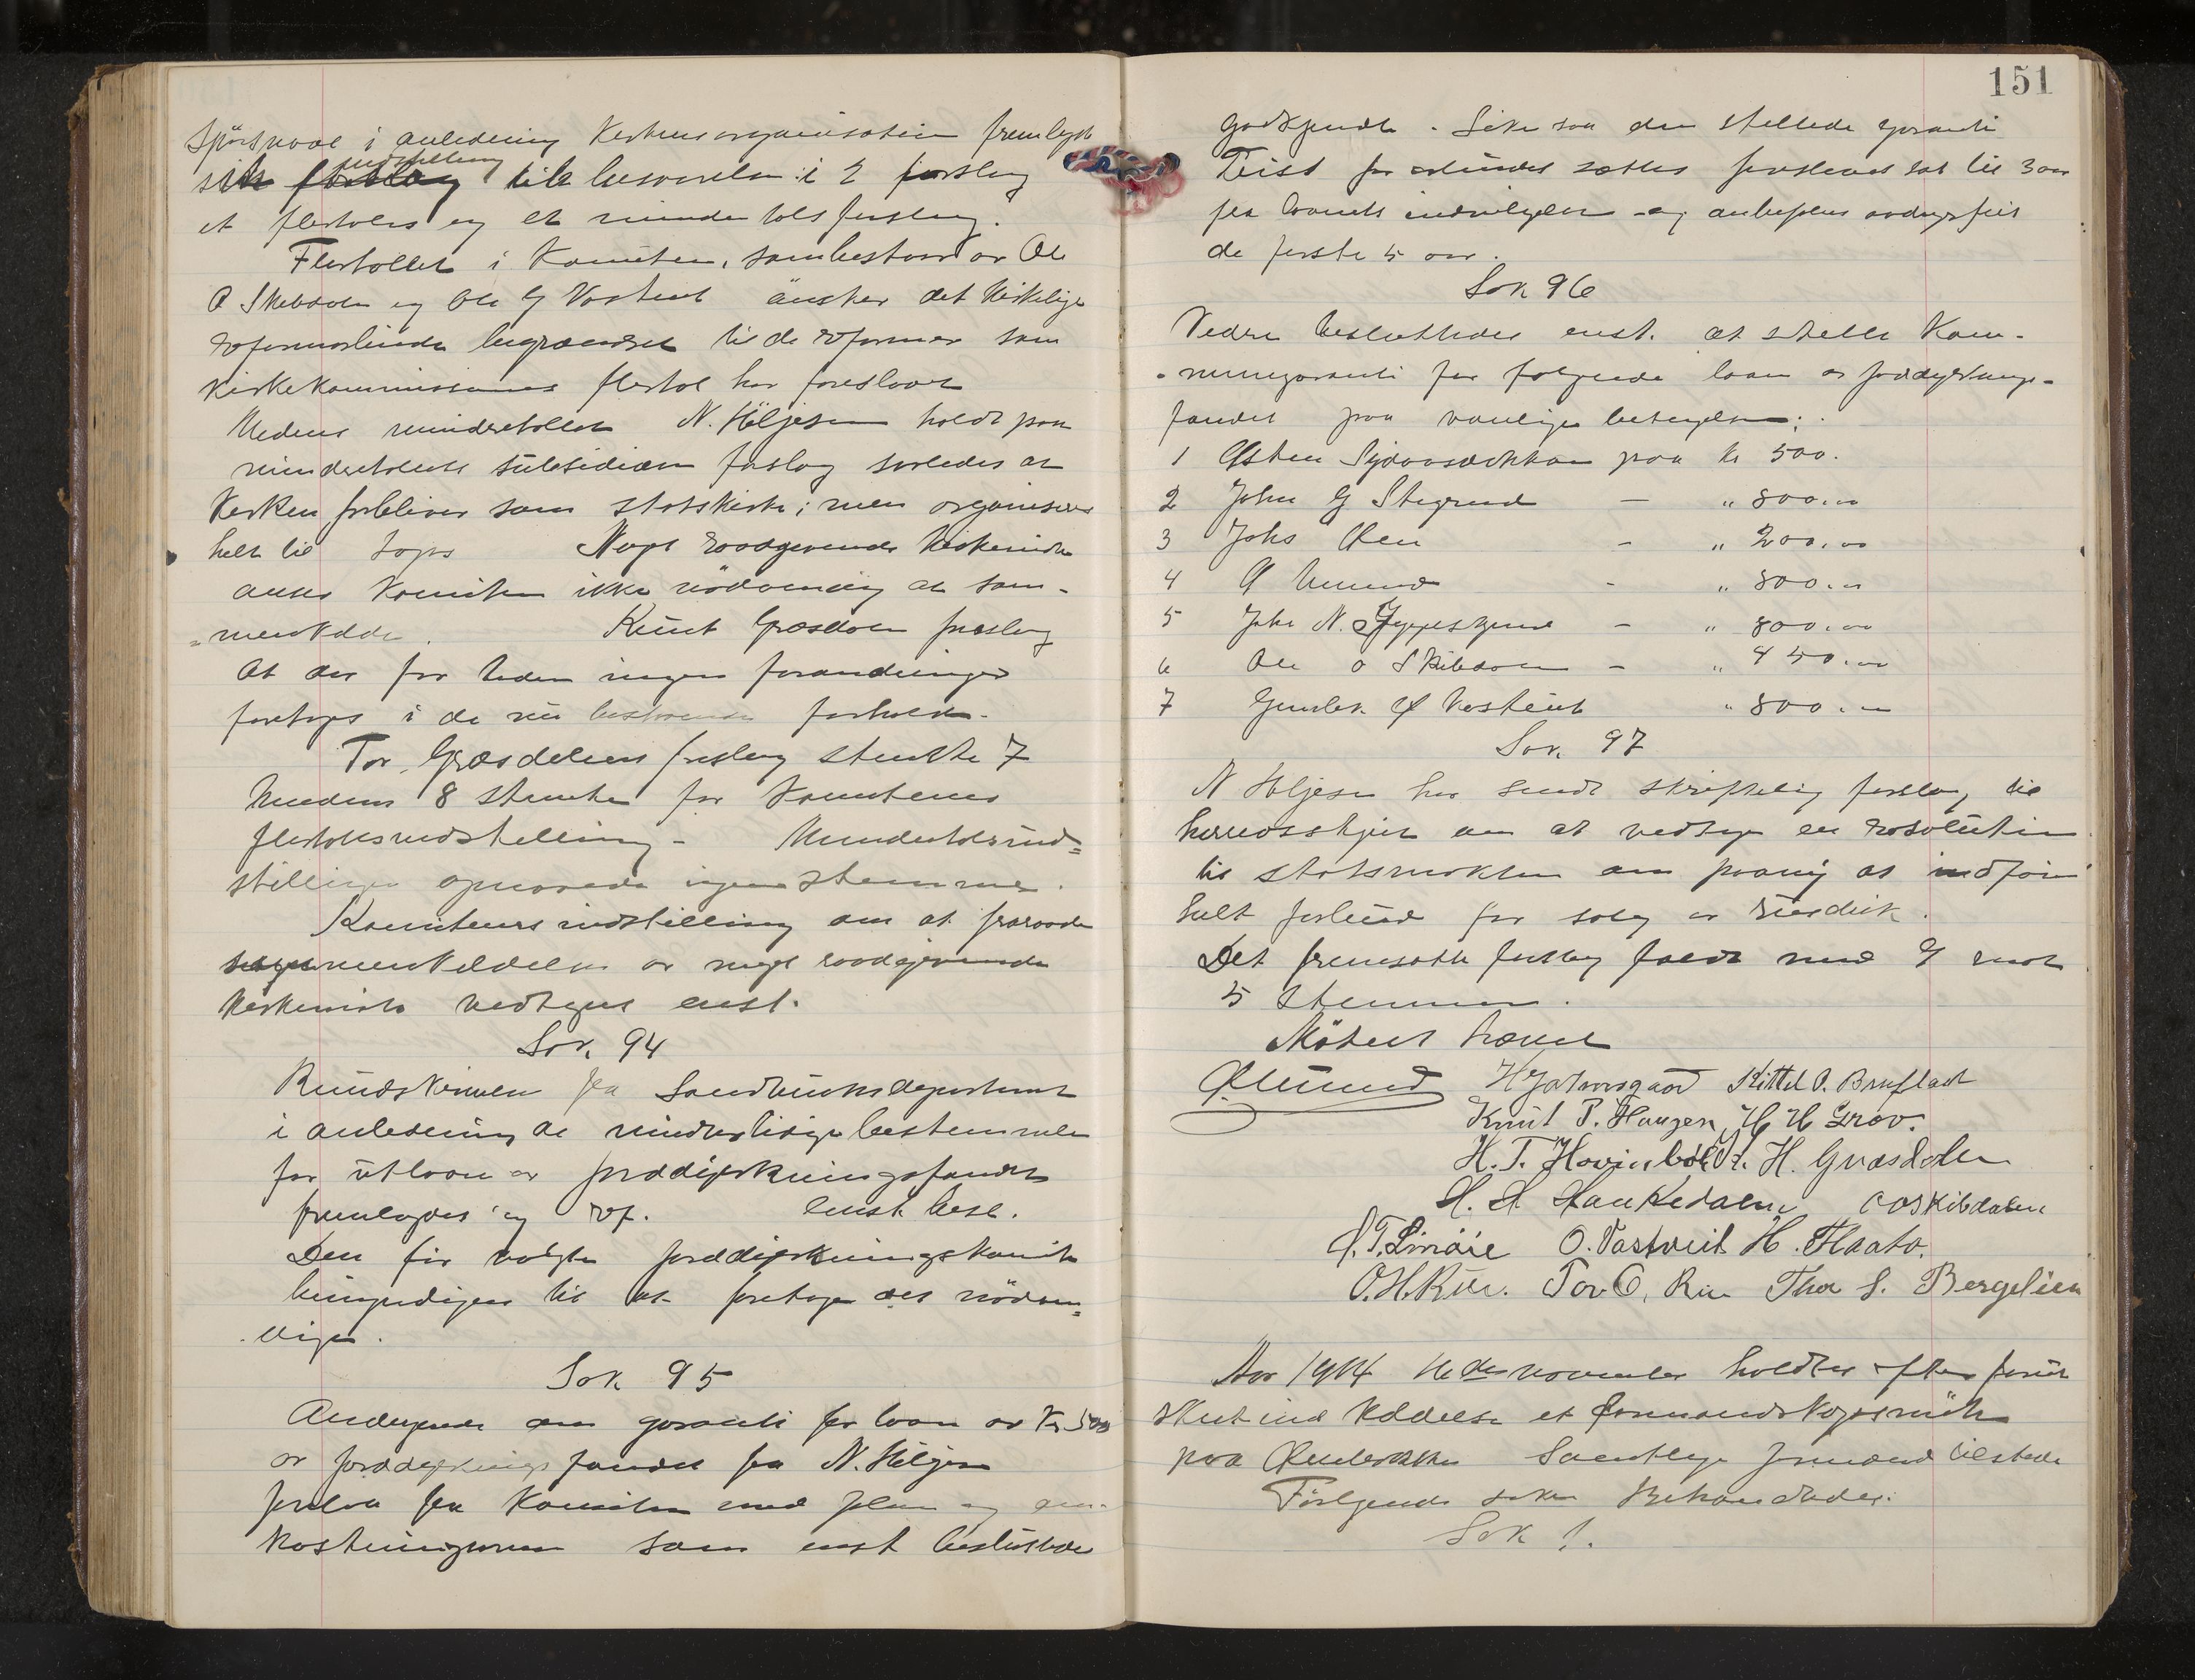 spörsmaal i anledning Kirkens organisation fremlagde
sin indstilling til besvarelse i 2 forslag
et flertals og et mindretalsforslag.
Flertallet i Komiteen, som bestaar av Ole
O Skibdalen og Ole G Vastveit önsker det kirkelige
reformarbeide begrændset til de reformer som
kirkekommissionens flertal har foreslaaet
Medens mindretallet N. Höljesen holdt paa
mindretallets subsidiære forslag saaledes at
Kirken forbliver som statskirke; men organiseres
helt til tops Noget raadgivende kirkemöte
anser Komiteen ikke nödvendig at sam-
menkalde. Knut Græsdalen forslag
At der for tiden ingen forandringer
foretages i de nu bestaaende forhold.
For Græsdalens forslag stemte 7
Medens 8 stemte for Komiteens
flertalsindstilling - Mindretalsind=
stillingen opnaaede ingen stemmer.
Komiteens indstilling om at fraraade
sammenkaldelse av noget raadgivende
kirkemöte vedtages enst.
Sak 94
Rundskrivelse fra Landbruksdepartement
i anledning de midlertidige bestemmelser
for utlaan av jorddyrkningsfondet
fremlagdes og ref. Enst. besl.
Den för valgte jorddyrkningskomite
bemyndiges til at foretage det nödven=
dige.
Sak 95
Andragende om garanti for laan av Kr 500
av jorddyrkningsfondet fra N. Höljesen
forelaa fra Komiteen med plan og om-
kostninger som enst besluttedes
151
godkjendt. Likesaa den stillede garanti
Frist for arbeidet sættes forslaaet sat til 3 aar
fra laanets indvilgelse og anbefales avdragsfrit
de første 5 aar.
Sak 96
Videre besluttedes enst. at stille Kom-
munegaranti for følgende laan av jorddyrknings-
fondet paa vanlige betingelser:
1 Østen paa kr 500.
2 John G Stegrud — " 800.00
3 Johs Øen - " 200.00
4 - " 800.00
5 John N. - " 800.00
6 Ole O Skibdalen - " 450.00
7 Gunlek Vastveit " 800.00
Sak 97
N Höljesen har sendt skriftelig forslag til
herredsstyret om at vedtage en resolution
til statsmakten om paany at indföre
helt forbud for salg av rusdrik.
Det fremsatte forslag faldt med 9 mot
5 stemmer.
Mötet hævet
Ø. Lmund H Hjartvsgaard Kittel O. Bruflat
Knut P. Haugen, H H Grov.
H. T. Hovinbøle K. H. Græsdalen
H. H. Haukedalen OO Skibdalen
O. T. Linaae O. Vastveit H. Flaato.
O. H. Rui. Tor O. Rui Thor S. Bergelien
Aar 1914 16de november holdtes efter forut
skeet indkaldelse et formandskapsmöte
paa Samtlige formænd tilstede
Fölgende saker Behandledes:
Sak 1.